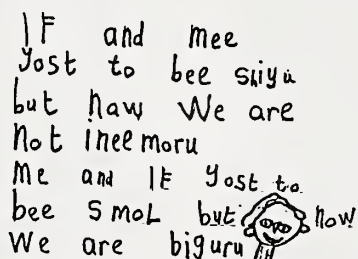 IF and mee
yost to bee shiyu
but naw We are
not inee moru
Me and IF yost to
bee SmoL but now
We are biguru